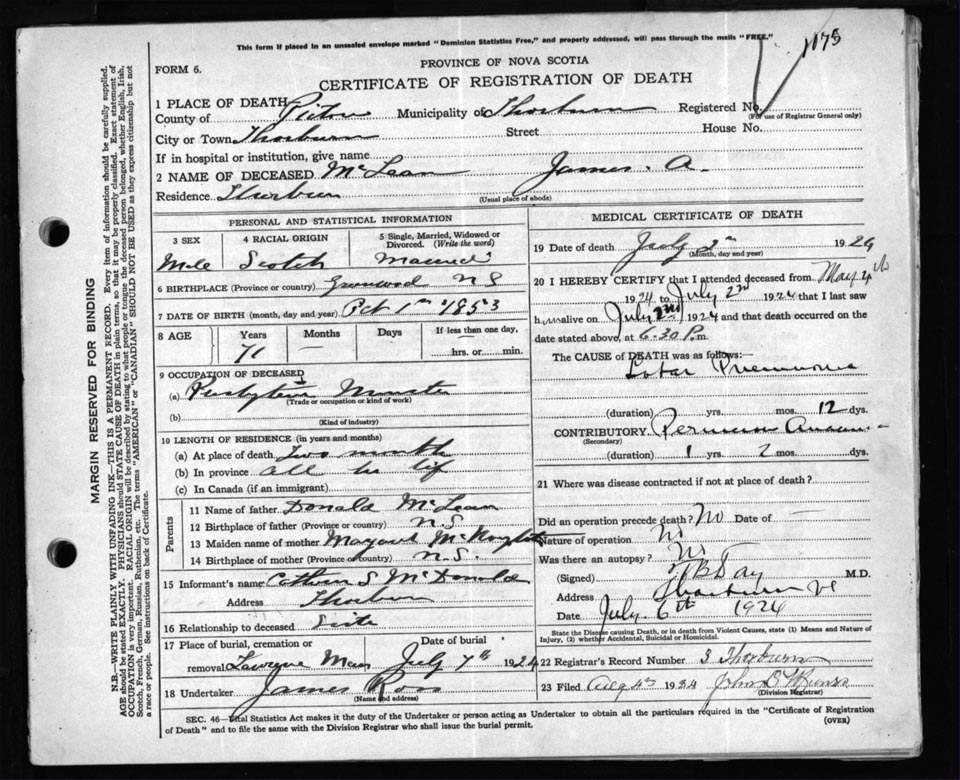 This form if placed in an unsealed envelope marked "Dominion Statistics Free," and properly addressed, will pass through the mails "FREE."
1175
FORM 6.
PROVINCE OF NOVA SCOTIA
CERTIFICATE OF REGISTRATION OF DEATH
1 PLACE OF DEATH
County of Pictou Municipality of Thorburn Registered No.
(For use of Registrar General only)
City or Town Thorburn Street House No.
If in hospital or institution, give name
2 NAME OF DECEASED McLean James. A.
Residence Thorburn
(Usual place of abode)
PERSONAL AND STATISTICAL INFORMATION
3 SEX 4 RACIAL ORIGIN 5 Single, Married, Widowed or Divorced. (Write the word)
Male Scotch Married
6 BIRTHPLACE (Province or country) Greenwood N S
7 DATE OF BIRTH (month, day and year) Oct 1st 1853
8 AGE Years Months Days If less than one day,
71 — hrs. or min.
9 OCCUPATION OF DECEASED
(a) Minister
(Trade or occupation or kind of work)
(b)
(Kind of industry)
10 LENGTH OF RESIDENCE (in years and months)
(a) At place of death Two month
(b) In province all his life
(c) In Canada (if an immigrant)
Parents
11 Name of father Donald McLean
12 Birthplace of father (Province or country) N.S.
13 Maiden name of mother Margaret
14 Birthplace of mother (Province or country) N.S.
15 Informant's name S McDonald
Address Thorburn
16 Relationship to deceased
17 Place of burial, cremation or removal Date of burial
July 7th 1924
18 Undertaker James Ross
(Name and address)
MEDICAL CERTIFICATE OF DEATH
19 Date of death July 2nd 1924
(Month, day and year)
20 I HEREBY CERTIFY that I attended deceased from May 4th
1924 to July 2nd 1924 that I last saw
him alive on July 2nd 1924 and that death occurred on the
date stated above, at 6.30 P.m.
The CAUSE of DEATH was as follows:—
Lobar Pneumonia
(duration) yrs. mos. 12 dys.
CONTRIBUTORY
(Secondary)
(duration) 1 yrs. 2 mos. dys.
21 Where was disease contracted if not at place of death?
Did an operation precede death? No Date of —
Nature of operation No
Was there an autopsy? No
(Signed) M.D.
Address Thorburn
Date July 6th 1924
State the Disease causing Death, or in death from Violent Causes, state (1) Means and Nature of Injury, (2) whether Accidental, Suicidal or Homicidal.
22 Registrar's Record Number 3 Thorburn
23 Filed
(Division Registrar)
SEC. 46—Vital Statistics Act makes it the duty of the Undertaker or person acting as Undertaker to obtain all the particulars required in the "Certificate of Registration
of Death" and to file the same with the Division Registrar who shall issue the burial permit. (OVER)
MARGIN RESERVED FOR BINDING
N.B.—WRITE PLAINLY WITH UNFADING INK—THIS IS A PERMANENT RECORD. Every item of information should be carefully supplied.
AGE should be stated EXACTLY. PHYSICIANS should STATE CAUSE OF DEATH in plain terms, so that it may be properly classified. Exact statement of
OCCUPATION is very important. RACIAL ORIGIN will be described by stating to what people or tongue the deceased person belonged, whether English, Irish,
Scotch, French, German, Russian, Ruthenian, etc. The terms "AMERICAN" or "CANADIAN" SHOULD NOT BE USED as they express citizenship but not
a race or people. See instructions on back of Certificate.